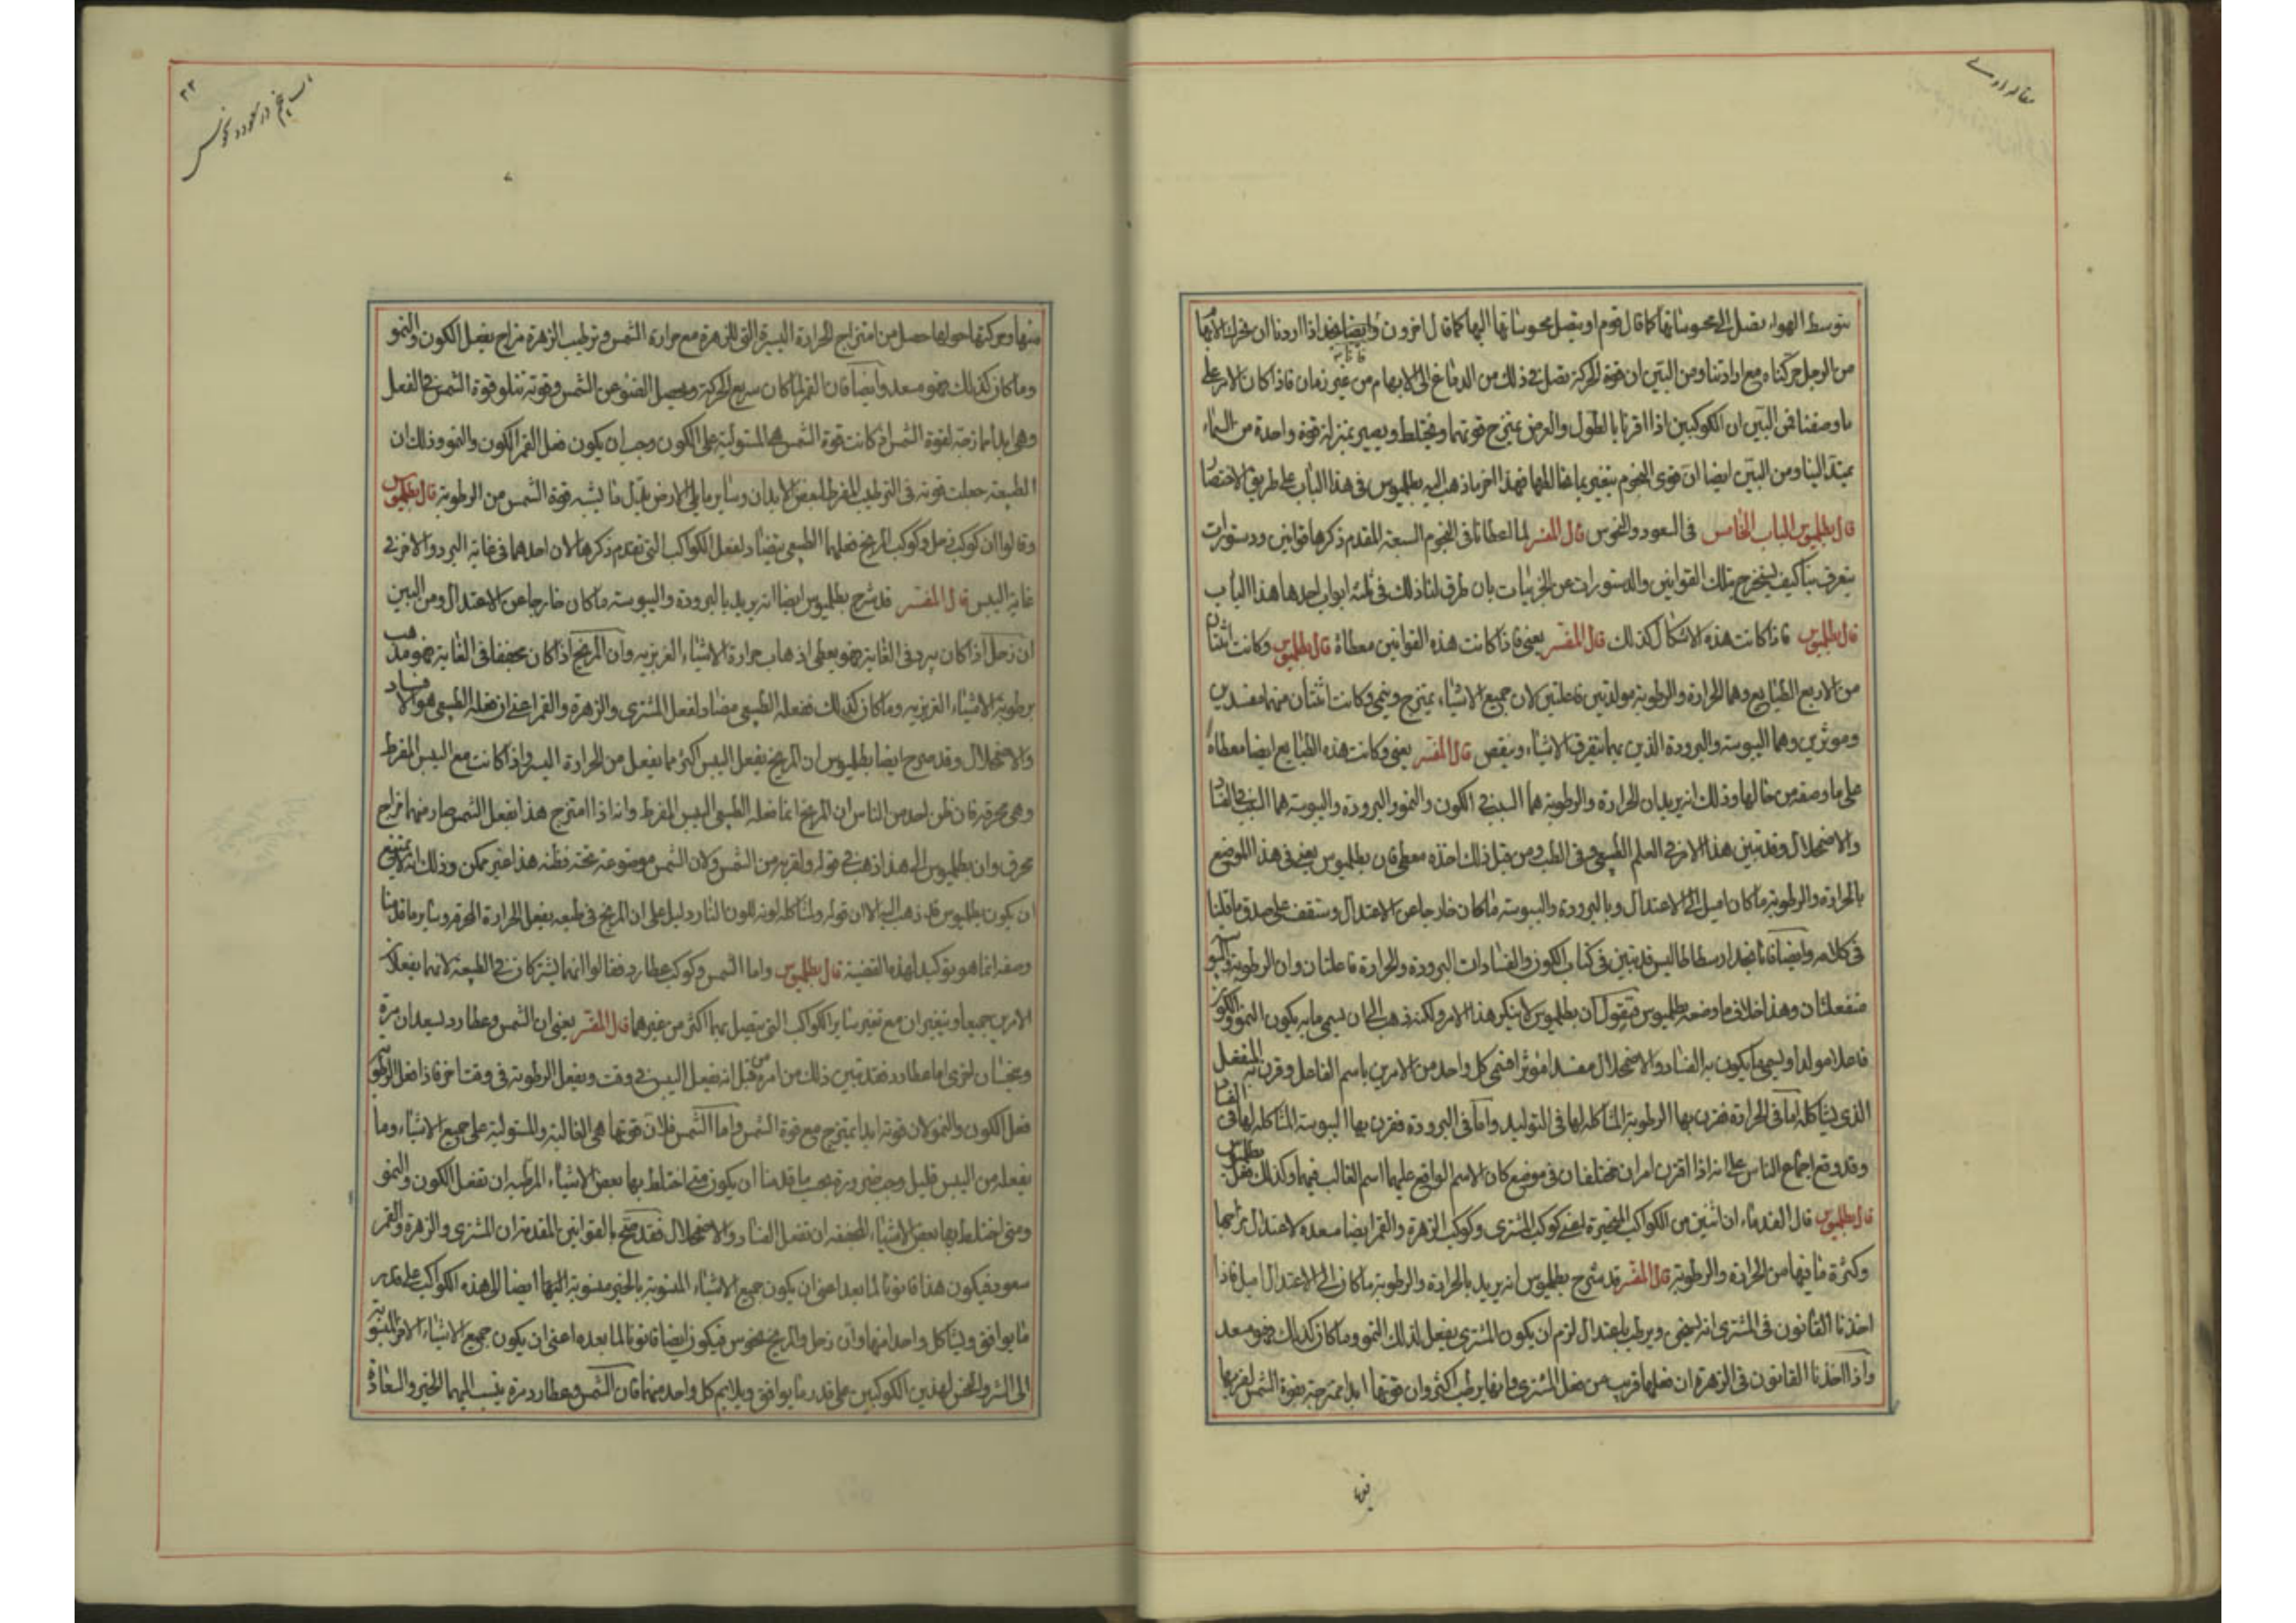 مقاله اولى
بتوسط الهواء يصل الى محسوساتها كما قال قوم او يتصل محسوساتها اليها كما قال اخرون وايضا اذا اردنا ان نحرك الابهام
من الرجل حركناه مع ارادتنا ومن البين ان قوة الحركة تصل فى ذلك من الدماغ الى الابهام من غير زمان فاذا كان الامر على
ما وصفنا فمن البين ان الكوكبين اذا اقترنا بالطول والعرض يمتزج قوتهما ويختلط ويصير بمنزلة قوة واحدة من السماء
يمتد الينا ومن البين ايضا ان قوى النجوم يتغير بما يخالطها فهذا اخر ما ذهب اليه بطلميوس فى هذا الباب على طريق الاختصار
قال بطلميوس الباب الخامس فى السعود والنحوس قال المفسر لما اعطانا فى النجوم السبعة المقدم ذكرها قوانين ودستورات
يتعرف بنا كيف يستخرج بتلك القوانين والدستورات عن الجزئيات بان طرق لنا ذلك فى ثلثة ابواب احدها هذا الباب
قال بطلميوس فاذا كانت هذه الاشكال كذلك قال المفسر يعنى فاذا كانت هذه القوانين معطاة قال بطلميوس وكانت اثنتان
من الاربع الطبايع وهما الحرارة والرطوبة مولدتين فاعلتين لان جميع الاشياء بهما يمتزج وينمى وكانت اثنتان منهما مفسدين
وموثرين وهما اليبوسة والبرودة الذين بهما يتفرق الاشياء وينقص قال المفسر يعنى وكانت هذه الطبايع ايضا معطاة
على ما وصفه من حالها وذلك انه يريد ان الحرارة والرطوبة هما السبب فى الكون والنمو والبرودة واليبوسة هما السبب فى الفساد
والاضمحلال وقد تبين هذا الامر فى العلم الطبيعى وفى الطب ومن قبل ذلك اخذه معطى فان بطلميوس يعنى فى هذا الموضع
بالحرارة والرطوبة ما كان اميل الى الاعتدال وبالبرودة واليبوسة ما كان خارجا عن الاعتدال وستقف على صدق ما قلنا
فى كلامه وايضا فانا نجد ارسطاطاليس قد تبين فى كتاب الكون والفساد ان البرودة والحرارة فاعلتان وان الرطوبة واليبوسة
منفعلتان وهذا خلاف ما وضعه بطلميوس فنقول ان بطلميوس لا ينكر هذا الامر ولكنه ذهب الى ان يسمى ما به يكون النمو والكون
فاعلا مولدا ويسمى ما يكون به الفساد والاضمحلال مفسدا موثرا فسمى كل واحد من الامرين باسم الفاعل وقرن به المنفعل
الذى يشاكله اما فى الحرارة فقرن بها الرطوبة المشاكلة لها فى التوليد واما فى البرودة فقرن بها اليبوسة المشاكلة لها فى الفساد
وقد وقع اجماع الناس على انه اذا اقترن امران مختلفان فى موضع كان الاسم الواقع عليهما اسم الغالب فيهما وكذلك فعل بطلميوس
قال بطلميوس قال القدماء ان اثنين من الكواكب المتحيرة يعنى كوكب المشترى وكوكب الزهرة والقمر ايضا مسعدة لاعتدال مزاجها
وكثرة ما فيها من الحرارة والرطوبة قال المفسر قد شرح بطلميوس انه يريد بالحرارة والرطوبة ما كان الى الاعتدال اميل فاذا
اخذنا القانون فى المشترى انه يسخن ويرطب باعتدال لزم ان يكون المشترى يفعل لذلك النمو وما كان كذلك فهو مسعد
واذا اخذنا القانون فى الزهرة ان فعلها قريب من فعل المشترى فانها يرطب اكثر وان قوتها ابدا ممتزجة بقوة الشمس لقربها
منها
۲۳
باب پنجم در سعود و نحوس
منها وحركتها حولها حصل من امتزاج الحرارة اليسيرة التى للزهرة مع حرارة الشمس وترطيب الزهرة مزاج يفعل الكون والنمو
وما كان كذلك فهو مسعد وايضا فان القمر لما كان سريع الحركة ويحصل الضوء من الشمس وقوته تتلو قوة الشمس فى الفعل
وهى ابدا ممازجة لقوة الشمس اذ كانت قوة الشمس هى المستولية على الكون وجب ان يكون فعل القمر الكون والنمو وذلك ان
الطبيعة جعلت قوته فى الترطيب المفرط لبعض الابدان وساير ما يلى الارض يقبل ما يشبه قوة الشمس من الرطوبة قال بطلميوس
وقالوا ان كوكب زحل وكوكب المريخ فعلهما الطبيعى يتضاد لفعل الكواكب التى تقدم ذكرها لان احدهما فى غاية البرد والاخر فى
غاية اليبس قال المفسر قد شرح بطلميوس ايضا انه يريد بالبرودة واليبوسة ما كان خارجا عن الاعتدال ومن البين
ان زحل اذا كان يبرد فى الغاية فهو يعطى اذهاب حرارة الاشياء الغريزية وان المريخ اذا كان يجفف فى الغاية فهو مذهب
برطوبة الاشياء الغريزية وما كان كذلك ففعله الطبيعى مضاد لفعل المشترى والزهرة والقمر اعنى ان فعله الطبيعى هو الافساد
والاضمحلال وقد شرح ايضا بطلميوس ان المريخ يفعل اليبس اكثر مما يفعل من الحرارة اليسيرة اذا كانت مع اليبس المفرط
وهى محرقة فان ظن احد من الناس ان المريخ انما فعله الطبيعى اليبس المفرط وانه اذا امتزج هذا بفعل الشمس صار منهما مزاج
محرق وان بطلميوس الى هذا ذهب فى قوله ولقربه من الشمس ولان الشمس موضوعة تحته فظنه هذا غير ممكن وذلك انه لا يمتنع
ان يكون بطلميوس قد ذهب اليه الا ان قوله ولمشاكلة لونه للون النار دليل على ان المريخ فى طبعه يفعل الحرارة المحرقة وساير ما قدمنا
وصفه انما هو توكيد لهذه القضية قال بطلميوس واما الشمس وكوكب عطارد فقالوا انهما يشتركان فى الطبيعة لانهما يفعلان
الامرين جميعا ويتغيران مع تغير ساير الكواكب التى يتصل بهما اكثر من غيرهما قال المفسر يعنى ان الشمس وعطارد يسعدان مرة
وينحسان اخرى اما عطارد فقد تبين ذلك من امره من قبل انه يفعل اليبس فى وقت ويفعل الرطوبة فى وقت اخر فاذا فعل الرطوبة
فعل الكون والنمو لان قوته ابدا يمتزج مع قوة الشمس واما الشمس فلان قوتها هى الغالبة والمستولية على جميع الاشياء وما
يفعله من اليبس قليل وجب ضرورة بحسب ما قدمنا ان يكون متى اختلط بها بعض الاشياء المرطبة ان تفعل الكون والنمو
ومتى اختلط بها بعض الاشياء المجففة ان تفعل الفساد والاضمحلال فقد صح بالقوانين المقدمة ان المشترى والزهرة والقمر
سعود فيكون هذا قانونا لما بعد اعنى ان يكون جميع الاشياء المنسوبة بالخير منسوبة اليها ايضا الى هذه الكواكب على قدر
ما يوافق ويشاكل واحد منها وان زحل والمريخ نحوس فيكون ايضا قانونا لما بعده اعنى ان يكون جميع الاشياء الاخر المنسوبة
الى الشر والنحس لهذين الكوكبين على قدر ما يوافق ويلايم كل واحد منهما فان الشمس وعطارد مرة ينسب اليهما الخير والسعادة